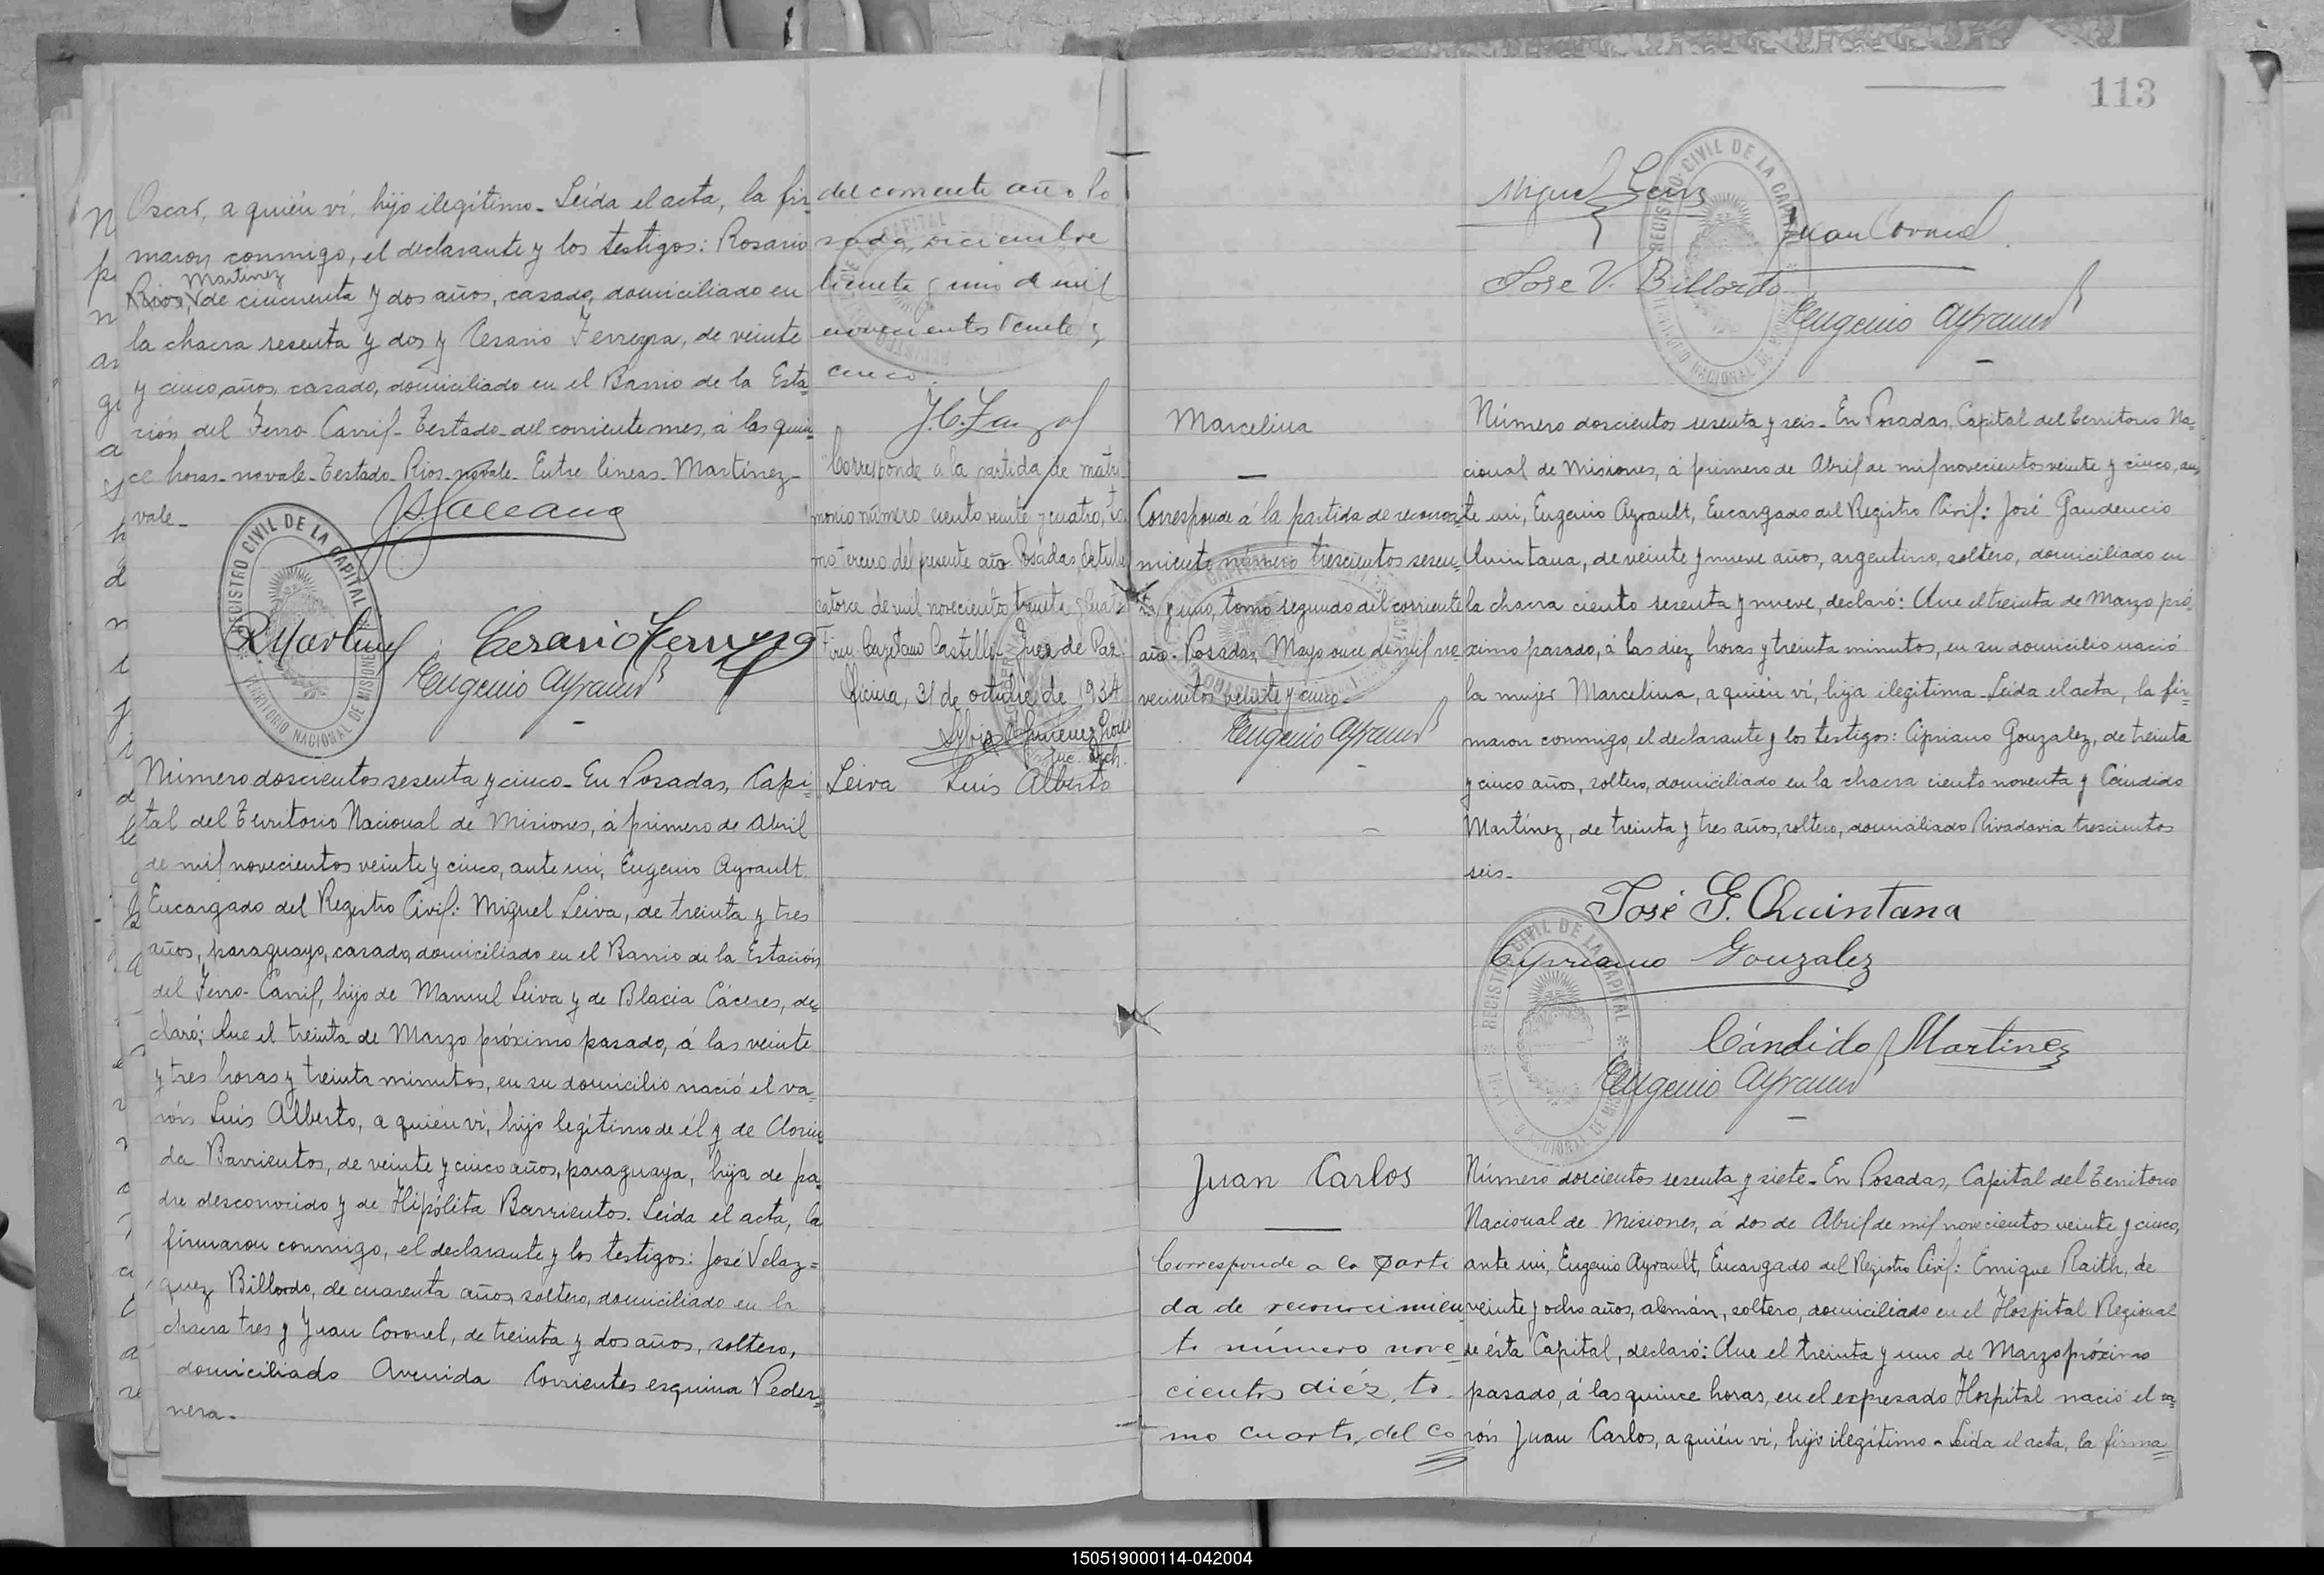 Oscar, a quién ví, hijo ilegítimo_ Leída el acta, la fir-
maron conmigo, el declarante y los testigos: Rosario
Martinez
Rios, de cincuenta y dos años, casado, domiciliado en
la chacra sesenta y dos y Cesario Ferreyra, de veinte
y cinco años, casado, domiciliado en el Barrio de la Esta-
ción del Ferro-Carril_ Testado_ del corriente mes, á las quin-
ce horas_ no vale_ Testado_ Rios_ no vale_ Entre lineas_ Martínez_
vale_
R Martinez
Cesario Ferreyra
Eugenio Ayrault
REGISTRO CIVIL DE LA CAPITAL
TERRITORIO NACIONAL DE MISIONES
Número doscientos sesenta y cinco_ En Posadas, Capi-
tal del Territorio Nacional de Misiones, á primero de Abril
de mil novecientos veinte y cinco, ante mi, Eugenio Ayrault
Encargado del Registro Civil: Miguel Leiva, de treinta y tres
años, paraguayo, casado, domiciliado en el Barrio de la Estación
del Ferro-Carril, hijo de Manuel Leiva y de Blacia Cáceres, de-
claró: Que el treinta de Marzo próximo pasado, á las veinte
y tres horas y treinta minutos, en su domicilio nació el va-
rón Luis Alberto, a quién ví, hijo legítimo de él y de Clorin
da Barrientos, de veinte y cinco años, paraguaya, hija de pa-
dre desconocido y de Hipólita Barrientos. Leída el acta, la
firmaron conmigo, el declarante y los testigos: José Velaz=
quez Billordo, de cuarenta años, soltero, domiciliado en la
chacra tres y Juan Coronel, de treinta y dos años, soltero,
domiciliado Avenida Corrientes esquina Peder-
nera-
del corriente año Po
sada, diciembre
treinta y uno de mil
novecientos treinta y
cinco.
Corresponde a la partida de matri-
monio número ciento veinte y cuatro, to
mo tercero del presente año Posadas, Octubre
catorce de mil novecientos treinta y cuatro
Firm. Cayetano Castelli- Juez de Paz.
Oficina, 31 de octubre de 1934
Leiva Luis Alberto
Marcelina
Corresponde á la partida de reconoci-
miento número trescientos sesen-
ta y uno, tomo segundo del corriente
año- Posadas, Mayo once de mil no-
vecientos veinte y cinco-
Eugenio Ayrault
Juan Carlos
Corresponde a la parti
da de reconocimien-
to número nove
cientos diéz, to-
mo cuarto, del co
113
Miguel Leiva
Juan Coronel
Jose V. Billordo
Eugenio Ayrault
REGISTRO CIVIL DE LA CAPITAL
Número doscientos sesenta y seis_ En Posadas, Capital del Territorio Na-
cional de Misiones, á primero de Abril de mil novecientos veinte y cinco, an-
te mi, Eugenio Ayrault, Encargado del Registro Civil: José Gaudencio
Quintana, de veinte y nueve años, argentino, soltero, domiciliado en
la chacra ciento sesenta y nueve, declaró: Que el treinta de Marzo pró-
ximo pasado, á las diez horas y treinta minutos, en su domicilio nació
la mujer Marcelina, a quién ví, hija ilegítima_ Leída el acta, la fir-
maron conmigo, el declarante y los testigos: Cipriano Gonzalez, de treinta
y cinco años, soltero, domiciliado en la chacra ciento noventa y Cándido
Martínez, de treinta y tres años, soltero, domiciliado Rivadavia trescientos
seis-
José G. Quintana
Cipriano Gonzalez
Cándido Martinez
Eugenio Ayrault
Número doscientos sesenta y siete_ En Posadas, Capital del Territorio
Nacional de Misiones, á dos de Abril de mil novecientos veinte y cinco,
ante mi, Eugenio Ayrault, Encargado del Registro Civil: Enrique Raith, de
veinte y ocho años, alemán, soltero, domiciliado en el Hospital Regional
de ésta Capital, declaró: Que el treinta y uno de Marzo próximo
pasado, á las quince horas, en el expresado Hospital nació el va-
rón Juan Carlos, a quién ví, hijo ilegítimo_ Leída el acta, la firma=
150519000114-042004